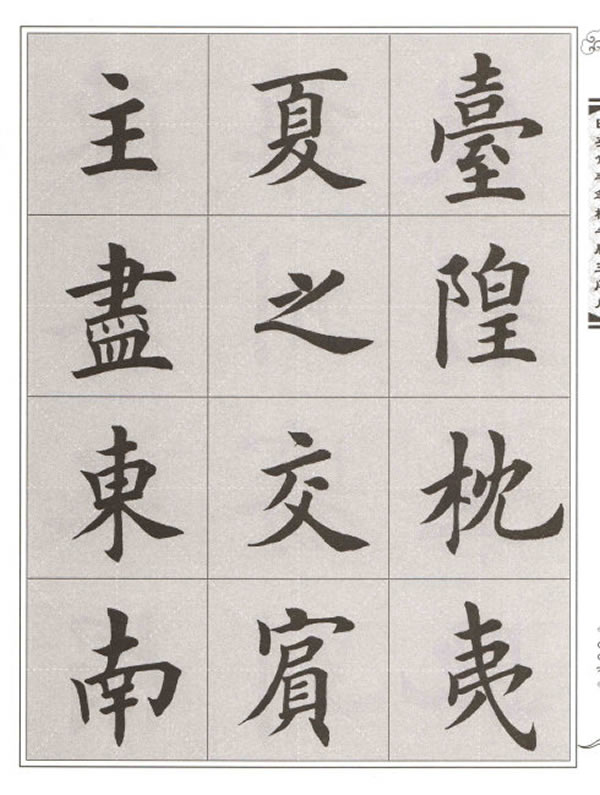 臺隍枕夷
夏之交賓
主盡東南